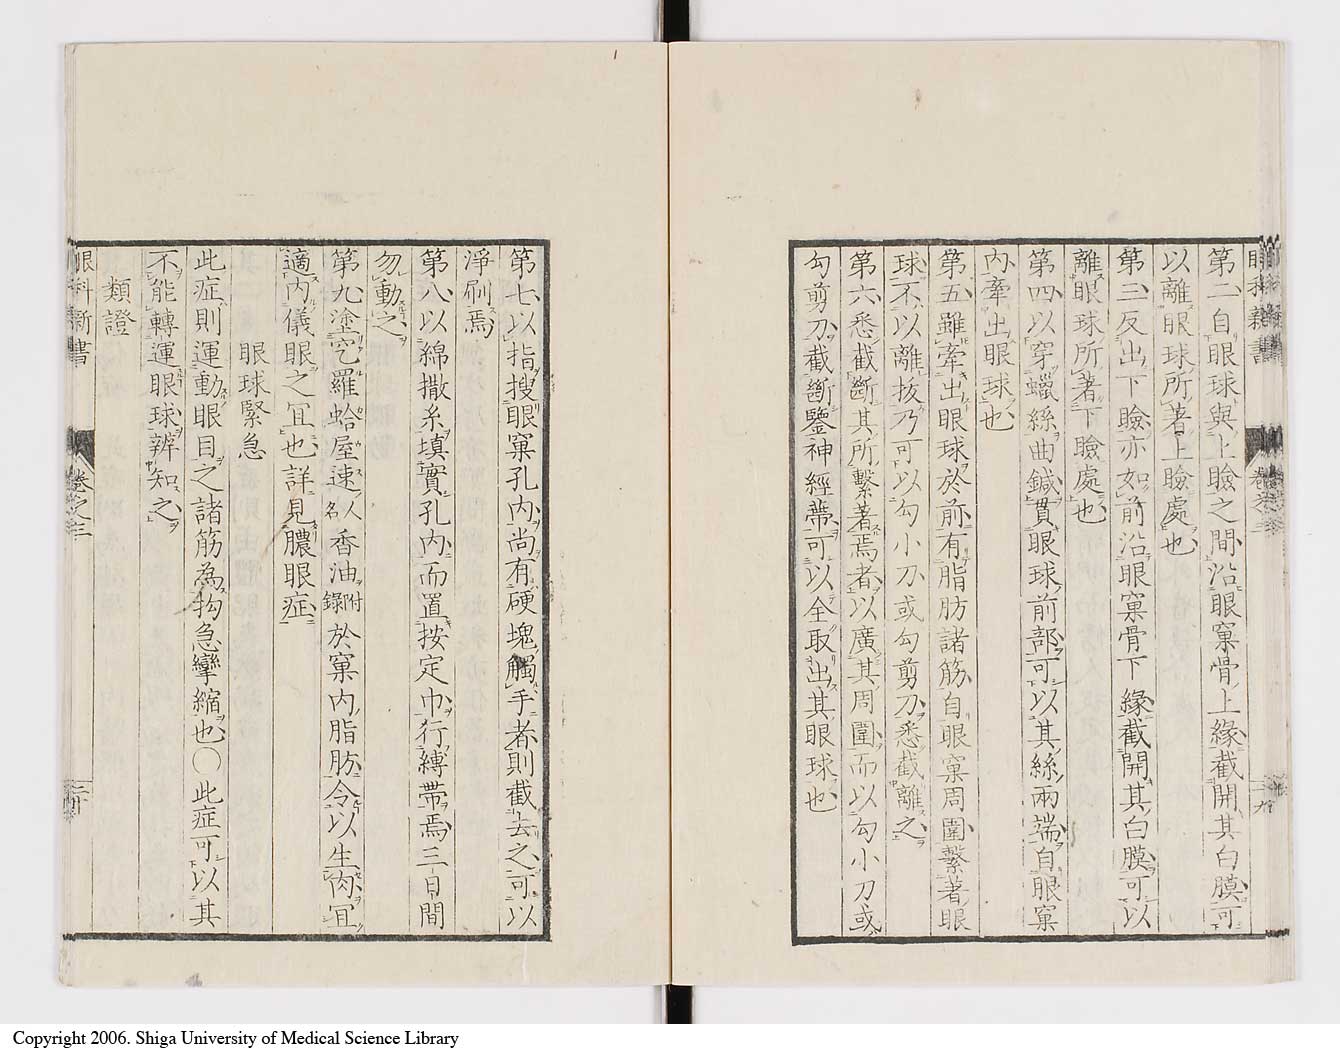 第二自眼球與上瞼之間沿眼窠骨上緣截開其白膜可
以離眼球所著上瞼處也
第三反出下瞼亦如前沿眼窠骨下緣截開其白膜可以
離眼球所著下瞼處也
第四以穿蠟絲曲鍼貫眼球前部可以其絲兩端自眼窠
内牽出眼球也
第五雖牽出眼球於前有脂肪諸筋自眼窠周圍繫著眼
球不以離拔乃可以勾小刀或勾剪刀悉截離之
第六悉截斷其所繫著焉者以廣其周圍而以勾小刀或
勾剪刀截斷鑒神經蔕可以全取出其眼球也
第七以指搜眼窠孔内尚有硬塊觸手者則截去之可以
淨刷焉
第八以綿撒糸填實孔内而置按定巾行縛帶焉三日間
勿動之
第九塗它羅蛤屋速人名香油附錄於窠内脂肪令以生肉冝
適内儀眼之冝也詳見膿眼症
眼球緊急
此症則運動眼目之諸筋為拘急攣縮也〇此症可以其
不能轉運眼球辨知之
類證
眼科新書
卷之二
二十
Copyright 2006. Shiga University of Medical Science Library